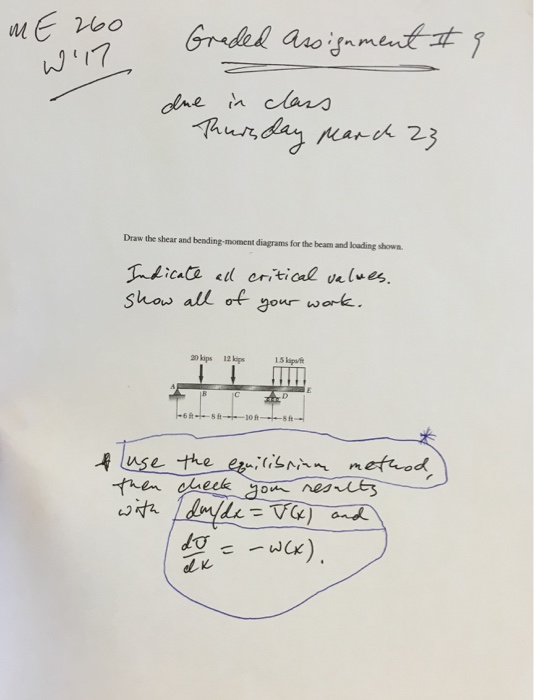 ME 260
W'17
Graded Assignment # 9
due in class
Thursday March 23
Draw the shear and bending-moment diagrams for the beam and loading shown.
Indicate all critical values.
Show all of your work.
20 kips 12 kips 1.5 kips/ft
A B C D E
6 ft 8 ft 10 ft 8 ft
* use the equilibrium method, *
then check your results
with dm/dx = V(x) and
dV/dx = -w(x).